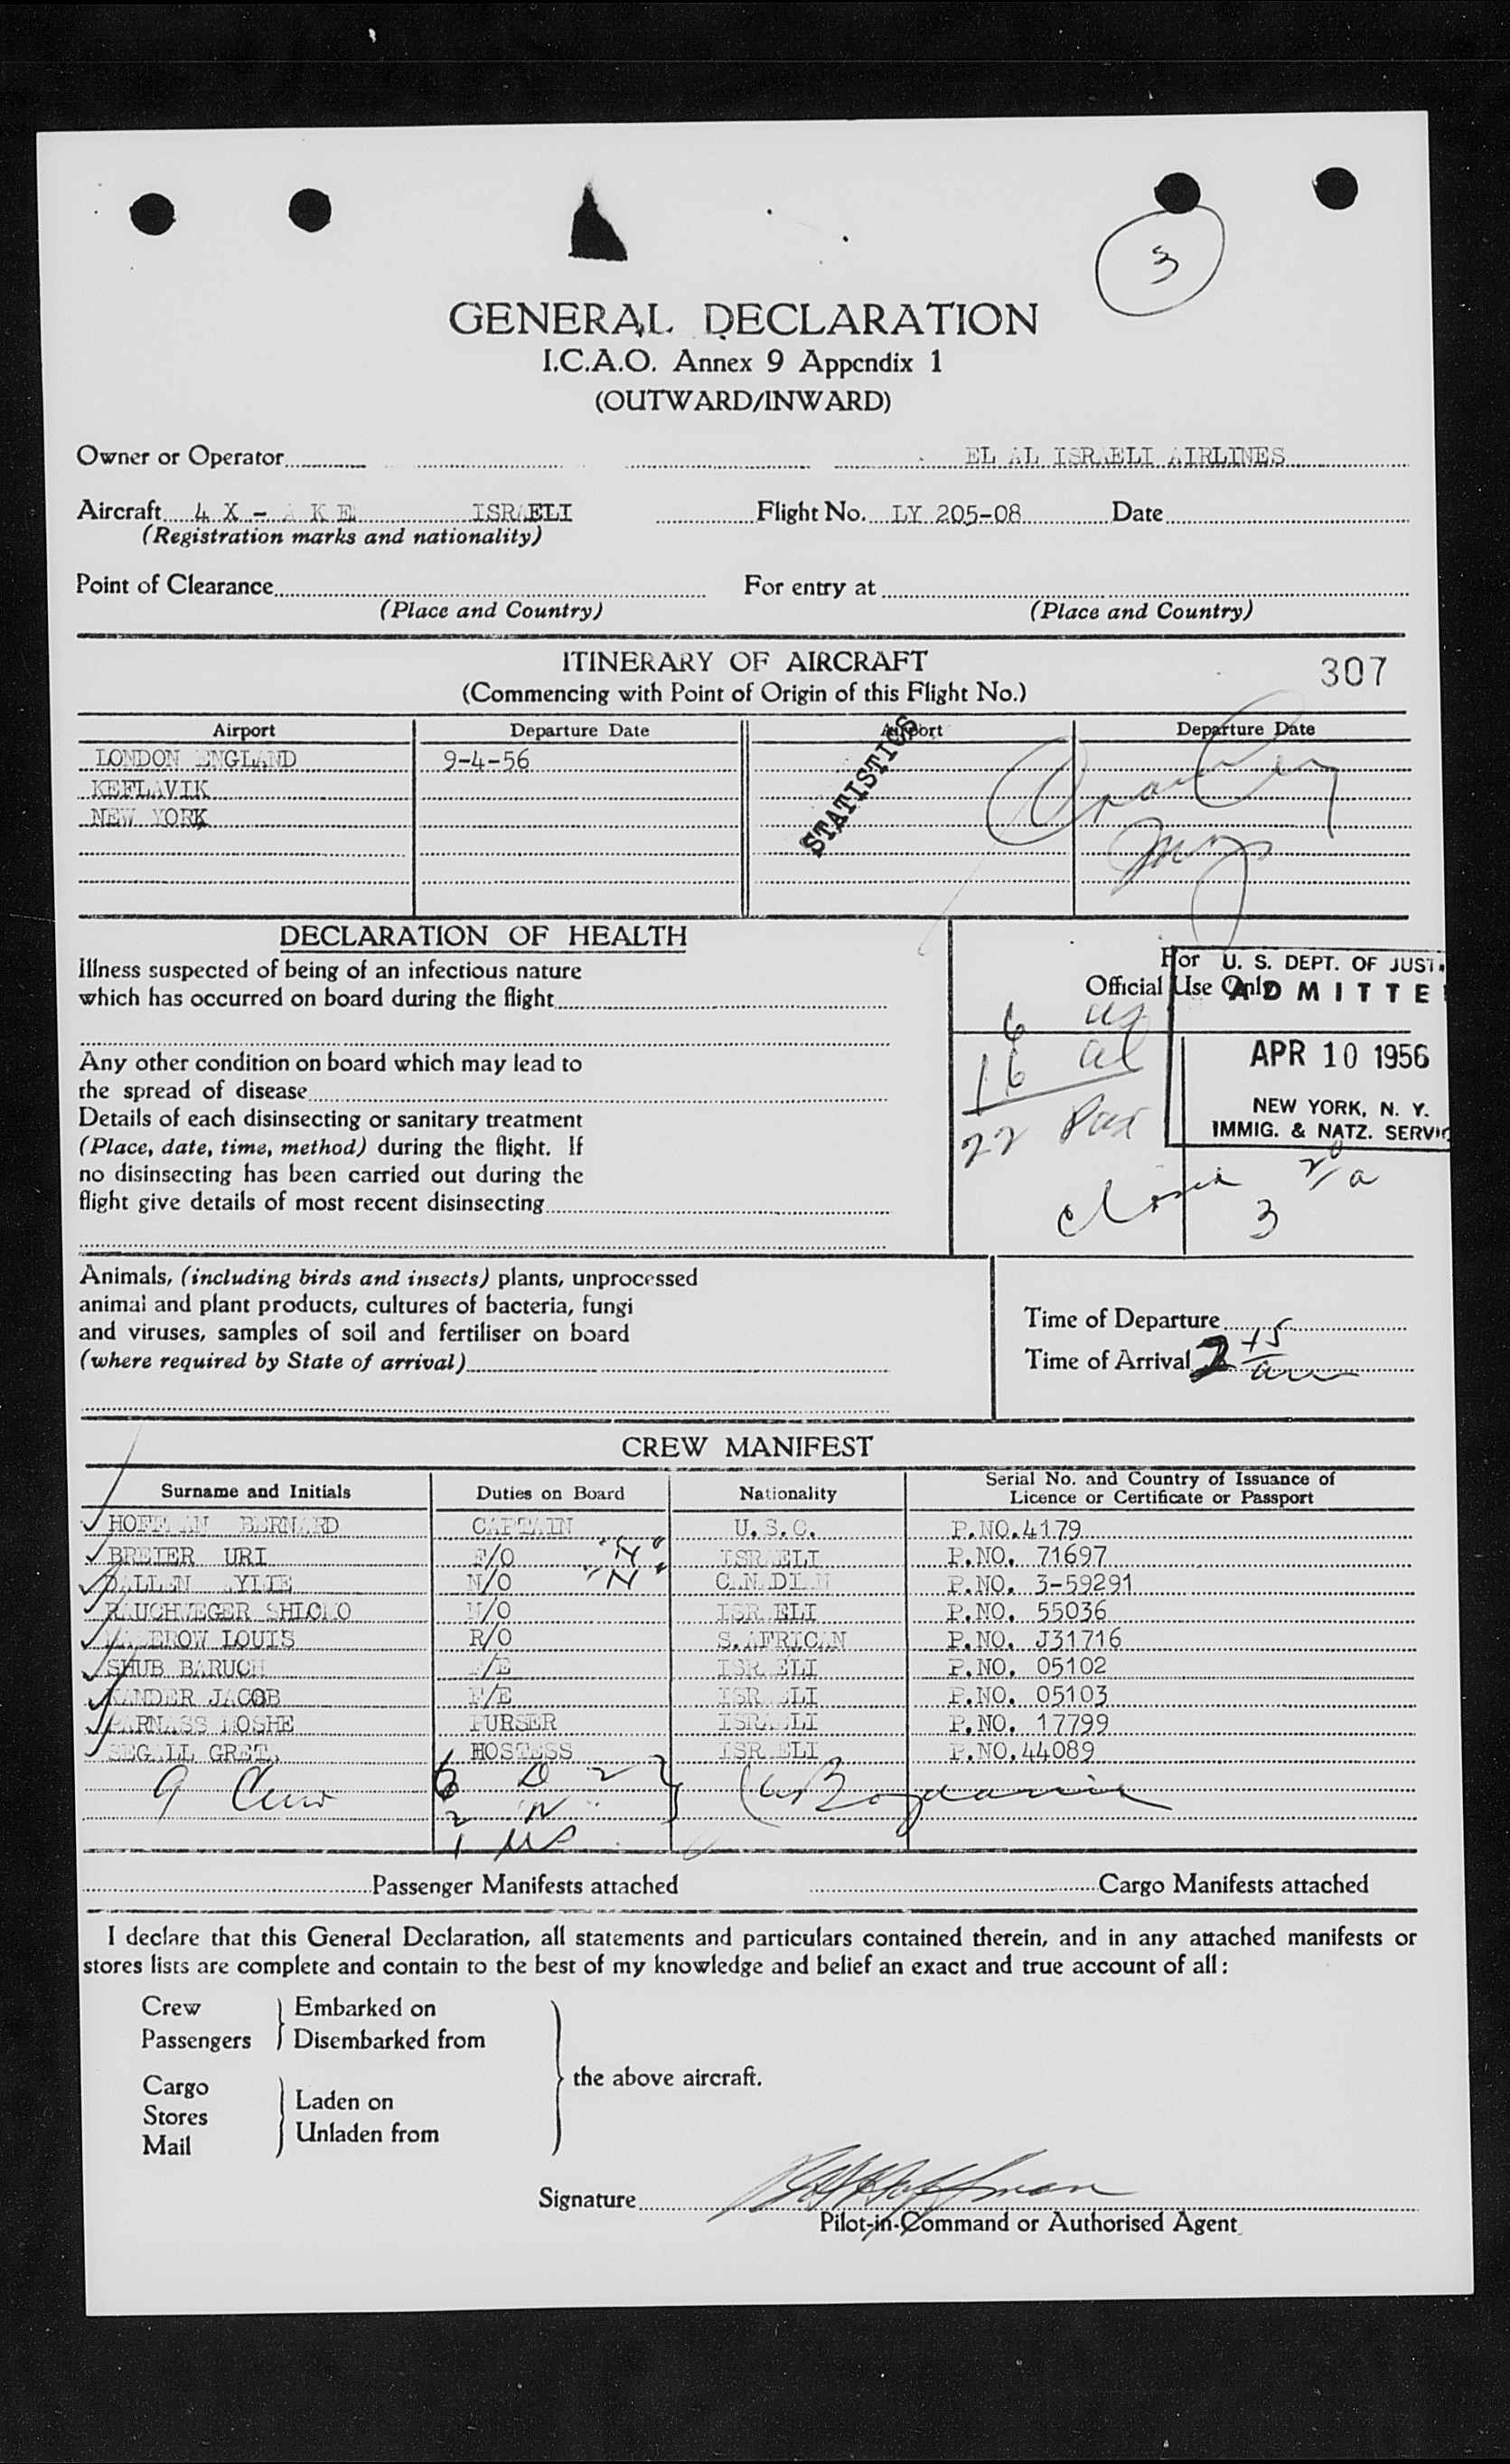 3
GENERAL DECLARATION
I.C.A.O. Annex 9 Appendix 1
(OUTWARD/INWARD)
Owner or Operator EL AL ISRAELI AIRLINES
Aircraft 4 X - A K E ISRAELI Flight No. LY 205-08 Date
(Registration marks and nationality)
Point of Clearance For entry at
(Place and Country) (Place and Country)
ITINERARY OF AIRCRAFT 307
(Commencing with Point of Origin of this Flight No.)
Airport Departure Date Airport Departure Date
LONDON ENGLAND 9-4-56
KEFLAVIK
NEW YORK
STATISTICS
DECLARATION OF HEALTH
Illness suspected of being of an infectious nature
which has occurred on board during the flight
Any other condition on board which may lead to
the spread of disease
Details of each disinsecting or sanitary treatment
(Place, date, time, method) during the flight. If
no disinsecting has been carried out during the
flight give details of most recent disinsecting
For
Official Use Only
U. S. DEPT. OF JUST.
ADMITTE
APR 10 1956
NEW YORK, N. Y.
IMMIG. & NATZ. SERVIC
6 us
16 al
22 Pax
3
Animals, (including birds and insects) plants, unprocessed
animal and plant products, cultures of bacteria, fungi
and viruses, samples of soil and fertiliser on board
(where required by State of arrival)
Time of Departure
Time of Arrival 2 45 am
CREW MANIFEST
Surname and Initials Duties on Board Nationality Serial No. and Country of Issuance of Licence or Certificate or Passport
HOFFMAN BERNARD CAPTAIN U.S.C. P.NO.4179
BREIER URI F/O "N" ISRAELI P.NO. 71697
N/O "N" CANDIAN P.NO. 3-59291
RAUCHWEGER SHLOMO ISRAELI P.NO. 55036
LOUIS R/O S.AFRICAN P.NO. J31716
SHUB BARUCH F/E ISRAELI P.NO. 05102
KANDER JACOB F/E ISRAELI P.NO. 05103
PARNASS MOSHE PURSER ISRAELI P.NO. 17799
SEGALL GRETA HOSTESS ISRAELI P.NO.44089
9 Crew 6 D 2
2 "N"
1 US
Passenger Manifests attached Cargo Manifests attached
I declare that this General Declaration, all statements and particulars contained therein, and in any attached manifests or
stores lists are complete and contain to the best of my knowledge and belief an exact and true account of all:
Crew Embarked on
Passengers Disembarked from
the above aircraft.
Cargo
Stores Laden on
Mail Unladen from
Signature Hoffman
Pilot-in-Command or Authorised Agent